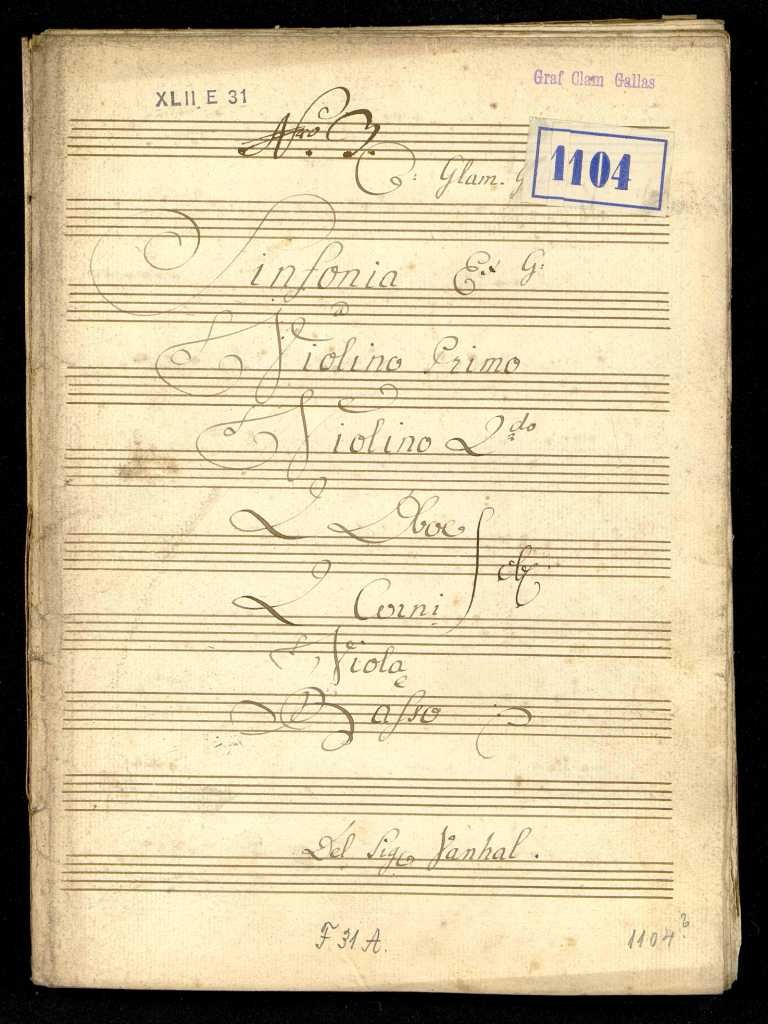 Graf Clam Gallas
XLII E 31
Nro. 3.
1104
C: Glam. G
Sinfonia Ex G:
Violino Primo
Violino 2do
2 Oboe
2 Corni
Viola
Basso
Del Sigr Vanhal.
F 31 A.
1104